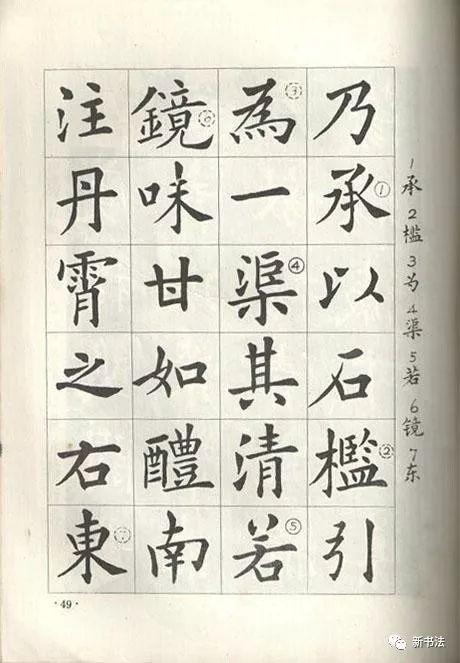 乃承以石檻引
為一渠其清若
鏡味甘如醴南
注丹霄之右東
③
①
④
②
⑤
⑥
⑦
1承 2槛 3为 4渠 5若 6镜 7东
·49·
新书法